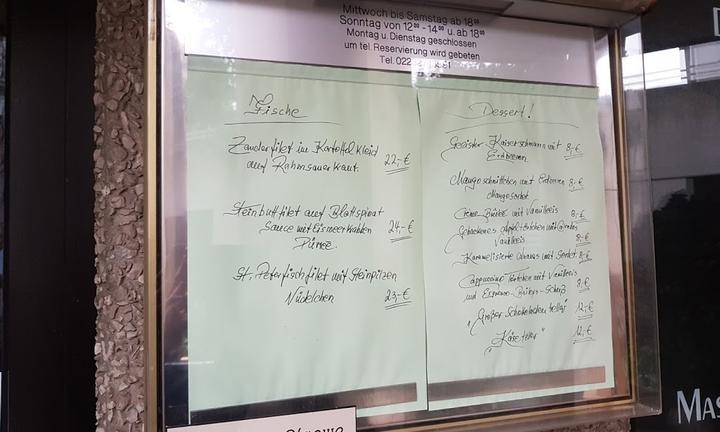 Mittwoch bis Samstag ab 18⁰⁰
Sonntag von 12⁰⁰ - 14⁰⁰ u. ab 18⁰⁰
Montag u. Dienstag geschlossen
um tel. Reservierung wird gebeten
Tel. 022
Fische
Zanderfilet im Kartoffelkleid
auf Rahmsauerkraut. 22,- €
Steinbuttfilet auf Blattspinat
Sauce mit Eismeerkrabben 24,- €
Püree.
St. Peterfischfilet mit Steinpilzen
Nüdelchen 23,- €
Dessert!
Kaiserschmarrn mit
Erdbeeren 8,- €
Mangoschnittchen mit Erdbeeren 8,- €
Mangosorbet
Crème-Brûlée mit Vanilleeis 8,- €
Gebackenes Apfeltörtchen mit
Vanilleis 8,- €
Karamelisierte Ananas mit Sorbet 8,- €
Cappuccino Törtchen mit Vanilleis
und Espresso- 8,- €
"Großer Schokoladen teller" 12,- €
"Käse teller" 12,- €
MAS